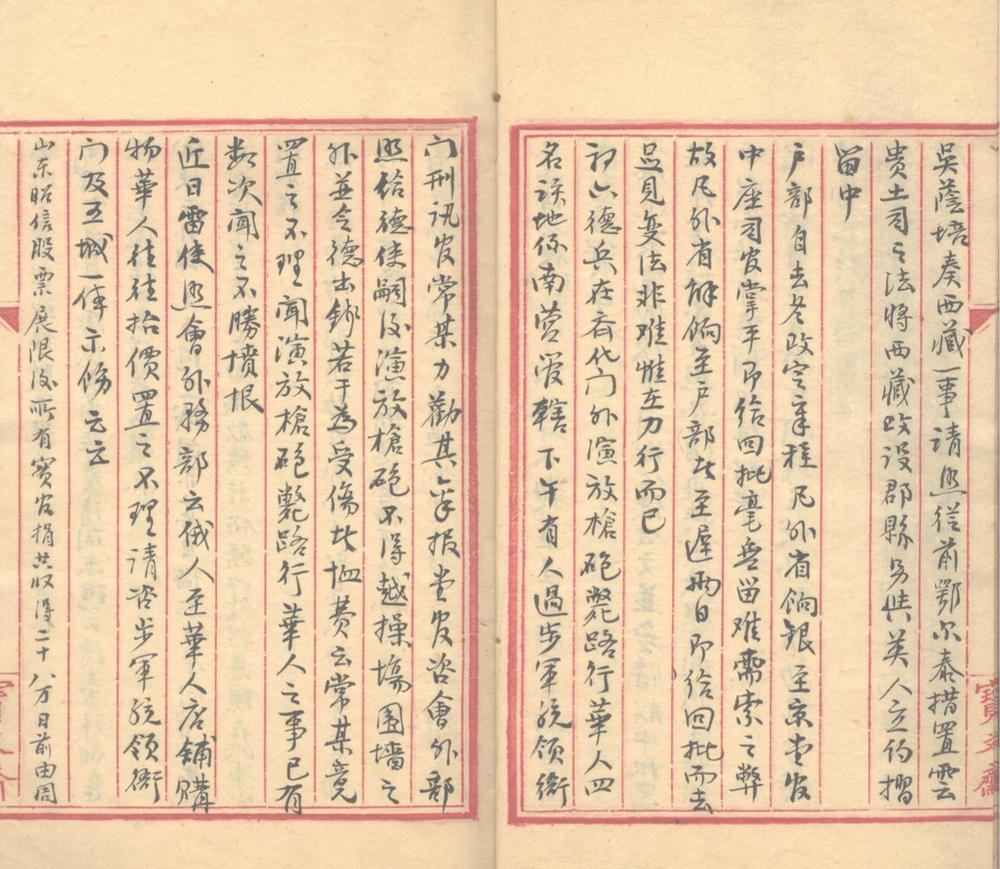 吳蔭培奏西藏一事請照從前鄂尔泰措置雲
貴土司之法將西藏改設郡縣另與英人立約摺
留中
戶部自去冬改定章程凡外省餉銀至京堂官
中座司官掌平即給回批毫無留难需索之弊
故凡外省解餉至戶部者至遲兩日即给回批而去
足見变法非难惟在力行而已
初六德兵在齐化门外演放槍砲斃路行華人四
名該地係南营管轄下午有人過步軍统领衙
门刑讯官常某力勸其稟报堂官咨會外部
照给德使嗣後演放槍砲不得越操塲圍墙之
外並令德出銀若干為受傷者恤费云常某竟
置之不理聞演放槍砲斃路行華人之事已有
数次聞之不勝墳恨
近日雷使照會外務部云俄人至華人店鋪購
物華人往往抬價置之不理請咨步軍统领衙
门及五城一体示飭云云
山东昭信股票展限後所有實官捐共收得二十八万日前由周
寶文齋
寶文齋